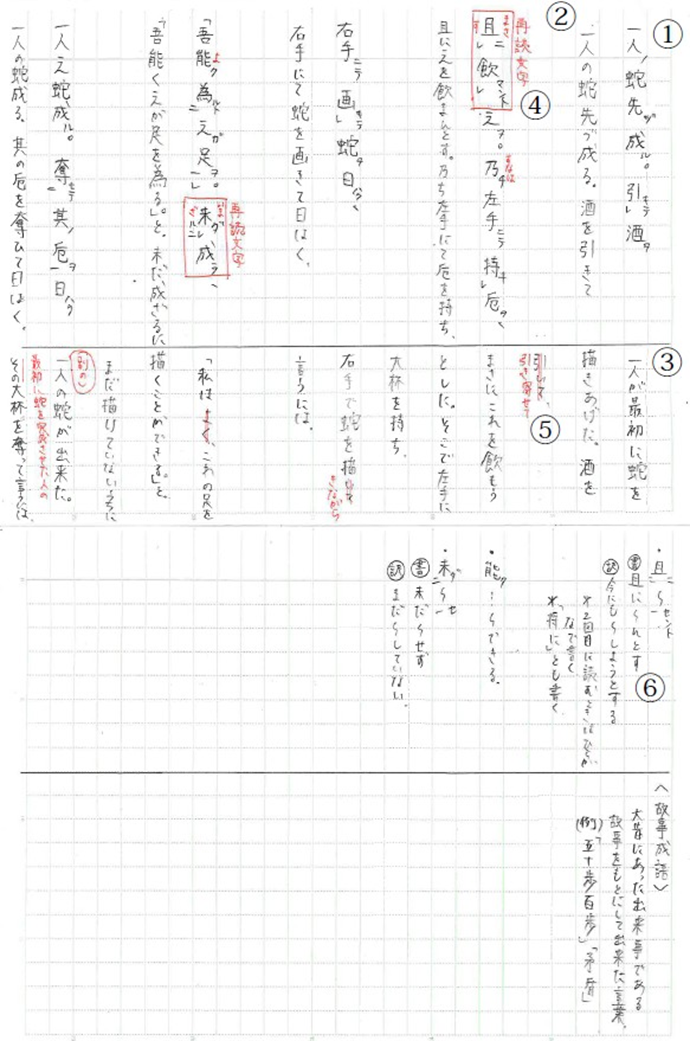 ①
一人ノ蛇先ヅ成ル。引キテ酒ヲ
一人の蛇先づ成る。酒を引きて
②
再読文字
まさ
且ニ飲マント之ヲ。乃チ左手ニテ持チ卮ヲ、
す
すなは
④
且に之を飲まんとす。乃ち左手にて卮を持ち、
右手ニテ画キテ蛇ヲ曰ハク、
右手にて蛇を画きて曰はく、
「吾能ク為ルト之ガ足ヲ。」
よ
再読文字
いま
未ダ成ラ、
ざルニ
「吾能く之が足を為る。」と。未だ成らざるに、
一人之蛇成ル。奪ヒテ其ノ卮ヲ曰ハク
一人の蛇成る。其の卮を奪ひて曰はく、
③
一人が最初に蛇を
描きあげた。酒を
引き寄せて
⑤
まさにこれを飲もう
とした。そこで左手に
大杯を持ち、
右手で蛇を描
きながら
言うには、
「私はよく、これの足を
描くことができる」と。
まだ描けていないうちに
(別の)
一人の蛇が出来た。
最初に蛇を完成させた人の
その大杯を奪って言うには、
・且ニ〜セント
書 且に〜んとす
訳 今にも〜しようとする
※2回目に読むときはひらが
なで書く
※「将に」とも書く
⑥
・能ク〜〜できる。
・未ダ〜セ
書 未だ〜せず
訳 まだ〜していない。
〈故事成語〉
大昔にあった出来事である
故事をもとにして出来た言葉。
(例)「五十歩百歩」「矛盾」